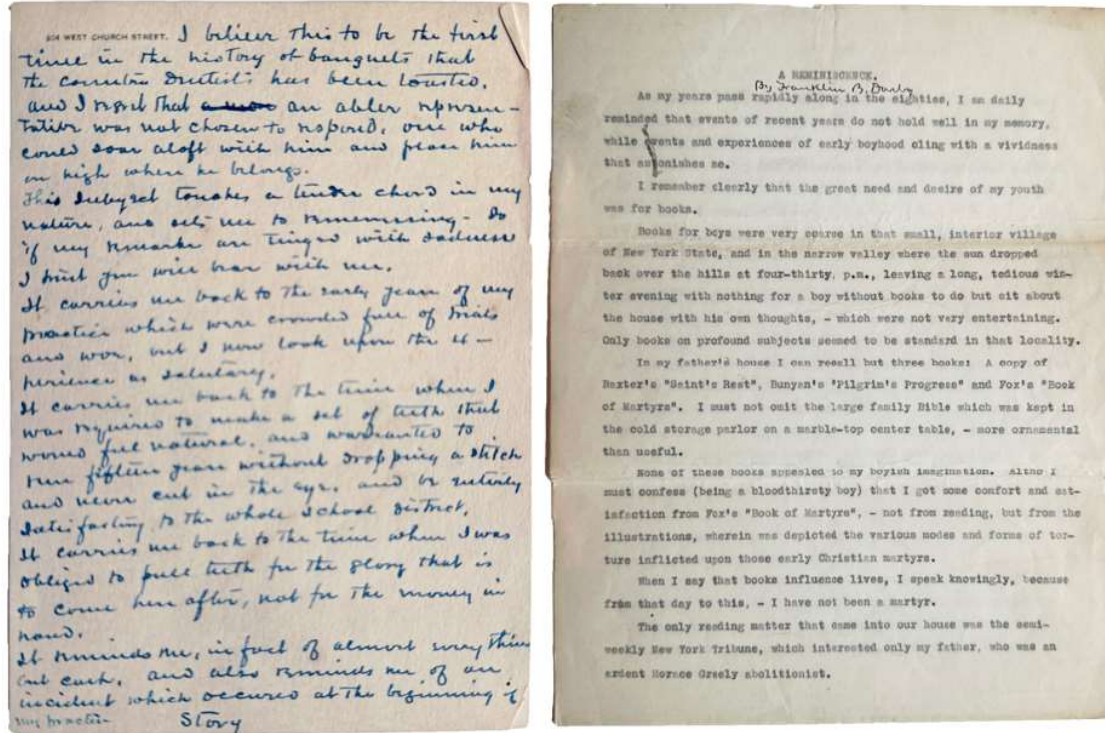 804 WEST CHURCH STREET. I believe this to be the first
time in the history of banquets that
the country Dentists has been toasted.
and I regret that an abler represen-
tative was not chosen to respond, one who
could soar aloft with him and place him
on high where he belongs.
This subject touches a tender chord in my
nature, and sets me to reminiscing - So
if my remarks are tinged with sadness
I trust you will bear with me.
It carries me back to the early years of my
practice which were crowded full of trials
and woe, but I now look upon the ex-
perience as salutary.
It carries me back to the time when I
was required to make a set of teeth that
would feel natural, and warranted to
run fifteen years without dropping a stitch
and never cut in the eye, and be entirely
satisfactory to the whole school district.
It carries me back to the time when I was
obliged to pull teeth for the glory that is
to come here after, not for the money in
hand.
It reminds me, in fact of almost every thing
but cash, and also reminds me of an
incident which occured at the beginning of
my practice Story
A REMINISCENCE.
By Franklin B. Darby
As my years pass rapidly along in the eighties, I am daily
reminded that events of recent years do not hold well in my memory,
while events and experiences of early boyhood cling with a vividness
that astonishes me.
I remember clearly that the great need and desire of my youth
was for books.
Books for boys were very sparse in that small, interior village
of New York State, and in the narrow valley where the sun dropped
back over the hills at four-thirty, p.m., leaving a long, tedious win-
ter evening with nothing for a boy without books to do but sit about
the house with his own thoughts, - which were not very entertaining.
Only books on profound subjects seemed to be standard in that locality.
In my father's house I can recall but three books: A copy of
Baxter's "Saint's Rest", Bunyan's "Pilgrim's Progress" and Fox's "Book
of Martyrs". I must not omit the large family Bible which was kept in
the cold storage parlor on a marble-top center table, - more ornamental
than useful.
None of these books appealed to my boyish imagination. Altho I
must confess (being a bloodthirsty boy) that I got some comfort and sat-
isfaction from Fox's "Book of Martyrs", - not from reading, but from the
illustrations, wherein was depicted the various modes and forms of tor-
ture inflicted upon those early Christian martyrs.
When I say that books influence lives, I speak knowingly, because
from that day to this, - I have not been a martyr.
The only reading matter that came into our house was the semi-
weekly New York Tribune, which interested only my father, who was an
ardent Horace Greely abolitionist.